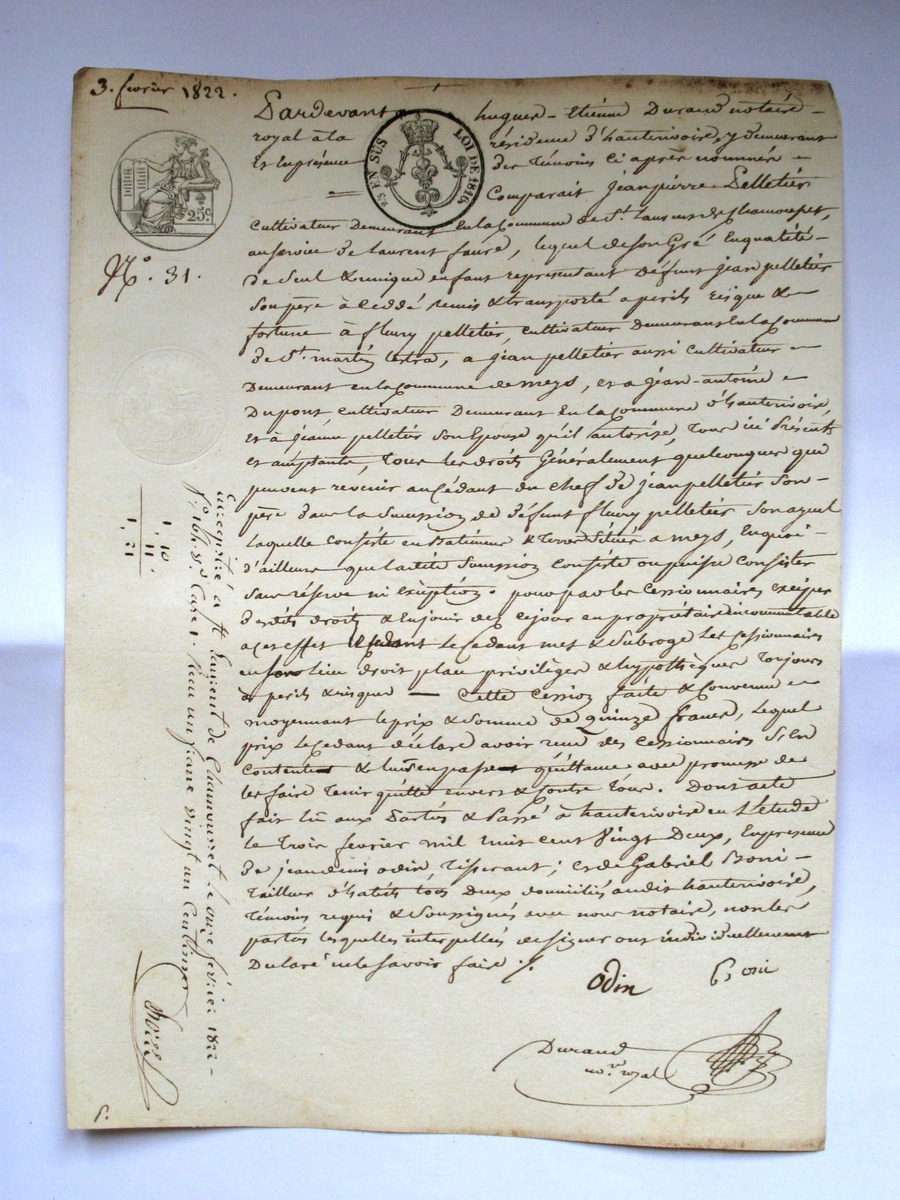 3. fevrier 1822.
Pardevant hugues-Etienne Durand notaire
royal à la résidence d'hauterivoire, y demeurant
Et En présence des Témoins ci après nommés
Comparait jean pierre Pelletier
25 EN SUS LOI DE 1816.
25c
Cultivateur Demeurant En la Commune de St. Laurent de Chamousset,
au service de Laurent faure, lequel de son Gré En qualité
de seul & unique enfant représentant défunt jean pelletier
son père à Cèddé remis & transporté a perils risque &
fortune à fleury pelletier, cultivateur demeurant En la Commune
de St. martin lestra, a jean pelletier aussi Cultivateur
Demeurant en la Commune de meys, et a jean-antoine
Dupont cultivateur Demeurant En la Commune d'hauterivoire,
Et à jeanne pelletier son Epouse qu'il autorise, Tous ici Présents
et acceptants, Tous les droits Généralement quelconques qui
peuvent revenir au Cédant du Chef de jean pelletier son
père dans la succession de défunt fleury pelletier son ayeul
laquelle consiste en batiments & Terres situés a meys, En quoi
d'ailleurs que la dite succession consiste ou puisse consister
sans réserve ni exception. pour par les Cessionnaires exciper
desdits droits & En jouir dès ce jour en propriétaire incommutable
a cet effet le Cedant met & subroge les cessionnaires
en son lieu droit place privilèges & hypothèques Toujours
à perils & risque — Cette Cession faite & Convenue
moyennant le prix & somme de quinze francs, lequel
prix le Cedant déclare avoir reçu des cessionnaires s'En
contente & leur en passe quittance avec promesse de
les faire Tenir quitte envers & Contre Tous. Dont acte
fait lu aux Parties & Passé à hauterivoire en L'étude
le Trois fevrier mil huit cent Vingt Deux, En présence
de jean denis odin, Tisserant; et de Gabriel Boni
Tailleur d'habits tous Deux domiciliés audit hauterivoire,
Témoins requis & soussignés avec nous notaire, non les
parties lesquelles interpellées de signer ont individuellement
Declaré ne le savoir faire ./.
odin Boni
Durand
no.re royal
No. 31.
1, 10
11.
1, 21
Enregistré à St Laurent de Chamousset le onze février 1822
reçu un franc vingt un Centimes